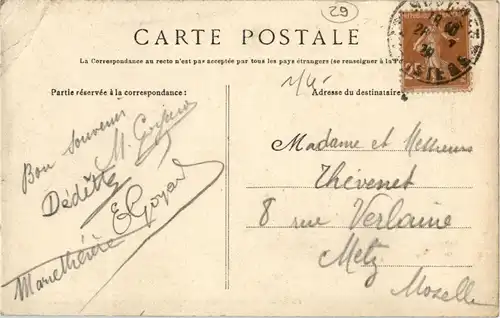 29
CARTE POSTALE
La Correspondance au recto n'est pas acceptée par tous les pays étrangers (se renseigner à la
Partie réservée à la correspondance :
Adresse du destinataire
25
Bon souvenir
M. Goyard
Dédette
E Goyard
Madame et
Thévenet
8 rue Verlaine
Metz
Moselle